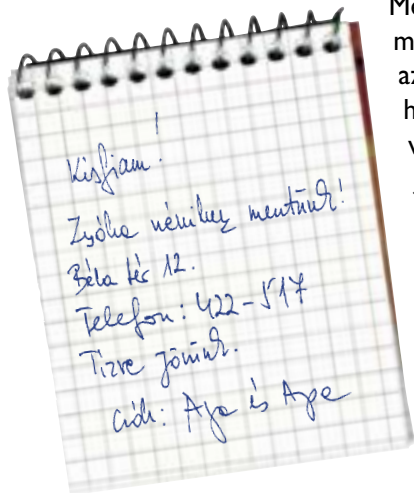 Kisfiam!
Zsóka nénihez mentünk!
Béla tér 12.
Telefon: 422-517
Tízre jövünk.
Csók: Anya és Apa